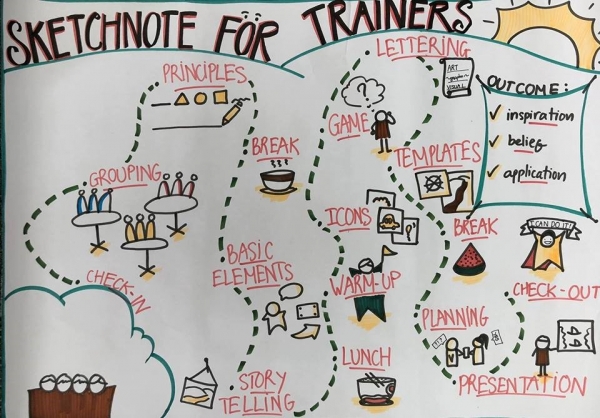 SKETCHNOTE FÖR TRAINERS
LETTERING
PRINCIPLES
ART
VISUAL
OUTCOME:
✓ inspiration
✓ belief
✓ application
?
GAME
BREAK
TEMPLATES
GROUPING
ICONS
?
BREAK
I CAN DO IT!
BASIC
ELEMENTS
WARM-UP
CHECK-IN
CHECK-OUT
PLANNING
LUNCH
STORY
TELLING
PRESENTATION